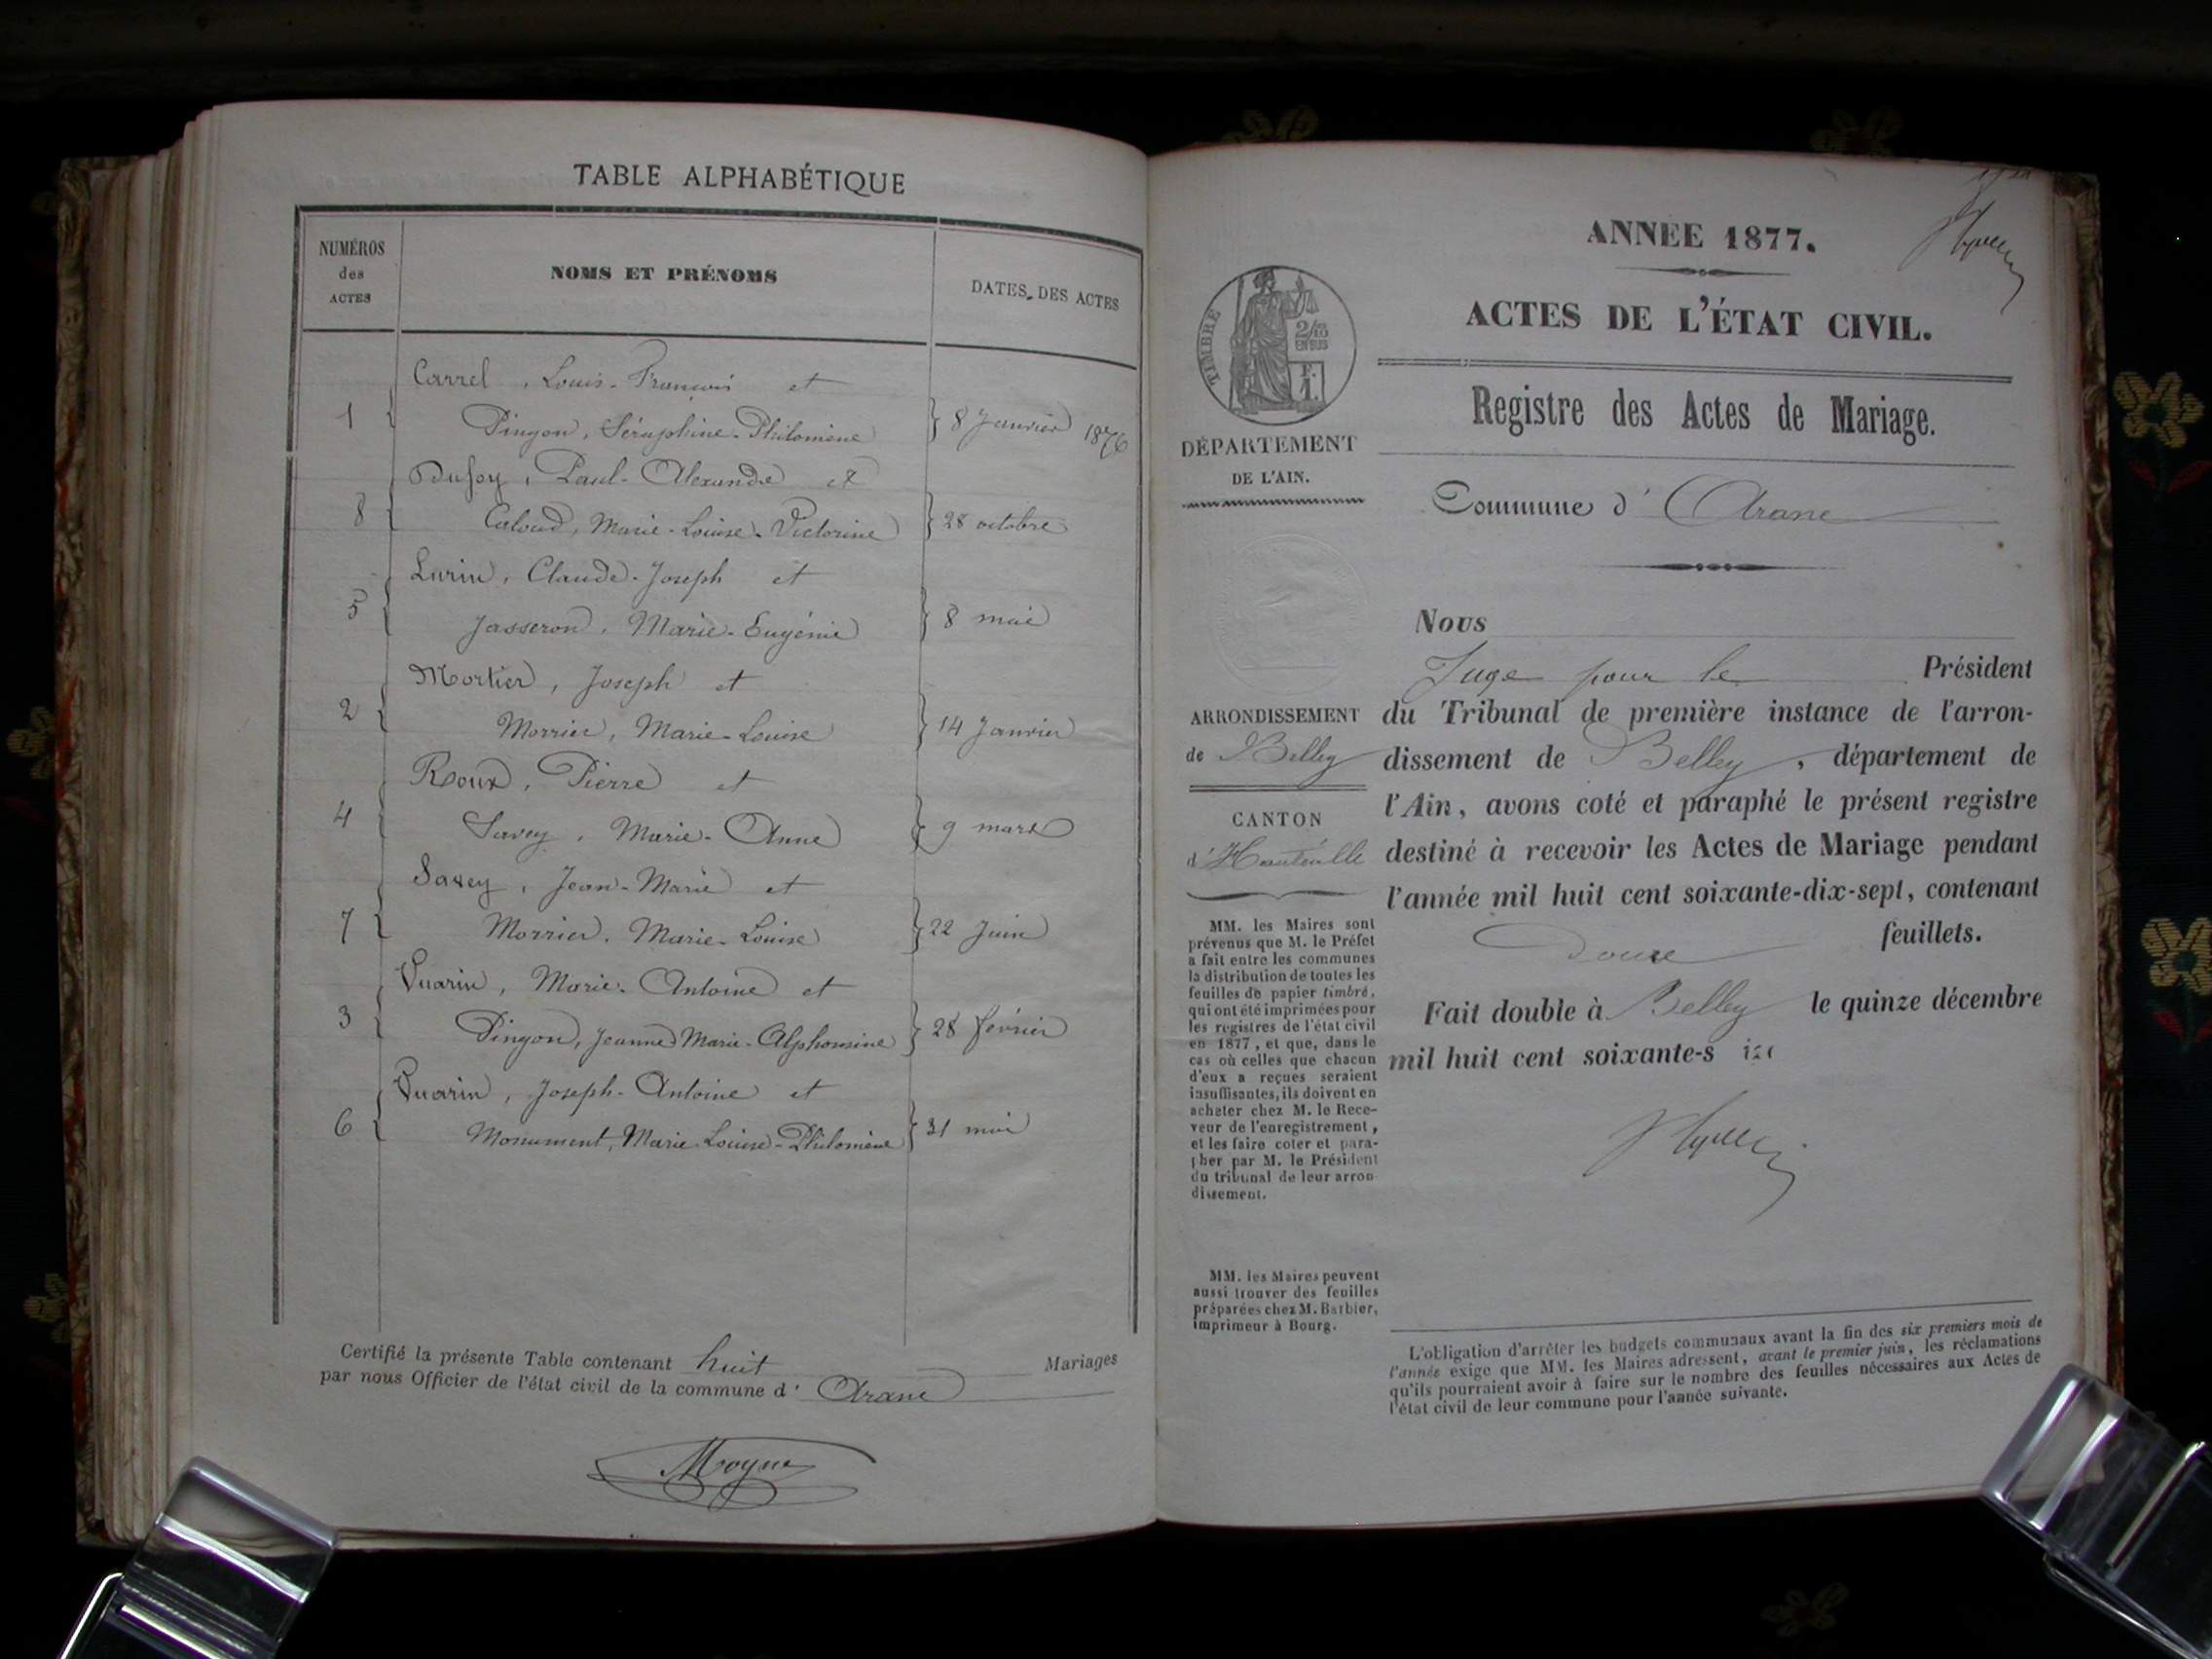 TABLE ALPHABÉTIQUE
NUMÉROS
des
ACTES
NOMS ET PRÉNOMS
DATES DES ACTES
Carrel, Louis-François et
1 Pingon, Séraphine-Philomène 8 Janvier 1876
Dufoy, Paul-Alexandre et
8 Caloud, Marie-Louise-Victorine 28 octobre
Lurin, Claude-Joseph et
5 Jasseron, Marie-Eugénie 8 mai
Mortier, Joseph et
2 Morrier, Marie-Louise 14 Janvier
Roux, Pierre et
4 Savey, Marie-Anne 9 mars
Savey, Jean-Marie et
7 Morrier, Marie-Louise 22 Juin
Vuarin, Marie-Antoine et
3 Pingon, Jeanne Marie-Alphonsine 28 février
Vuarin, Joseph-Antoine et
6 Monument, Marie-Louise-Philomène 31 mai
Certifié la présente Table contenant huit Mariages
par nous Officier de l'état civil de la commune d' Arane
Moyne
ANNÉE 1877.
ACTES DE L'ÉTAT CIVIL.
Registre des Actes de Mariage.
Commune d' Arane
TIMBRE
2/10
EN SUS
F.
1.
DÉPARTEMENT
DE L'AIN.
ARRONDISSEMENT
de Belley
CANTON
d'Hauteville
MM. les Maires sont
prévenus que M. le Préfet
a fait entre les communes
la distribution de toutes les
feuilles de papier timbré,
qui ont été imprimées pour
les registres de l'état civil
en 1877, et que, dans le
cas où celles que chacun
d'eux a reçues seraient
insuffisantes, ils doivent en
acheter chez M. le Rece-
veur de l'enregistrement,
et les faire coter et para-
pher par M. le Président
du tribunal de leur arron-
dissement.
MM. les Maires peuvent
aussi trouver des feuilles
préparées chez M. Barbier,
imprimeur à Bourg.
Nous
Juge pour le Président
du Tribunal de première instance de l'arron-
dissement de Belley, département de
l'Ain, avons coté et paraphé le présent registre
destiné à recevoir les Actes de Mariage pendant
l'année mil huit cent soixante-dix-sept, contenant
Douze feuillets.
Fait double à Belley le quinze décembre
mil huit cent soixante-s
L'obligation d'arrêter les budgets communaux avant la fin des six premiers mois de
l'année exige que MM. les Maires adressent, avant le premier juin, les réclamations
qu'ils pourraient avoir à faire sur le nombre des feuilles nécessaires aux Actes de
l'état civil de leur commune pour l'année suivante.